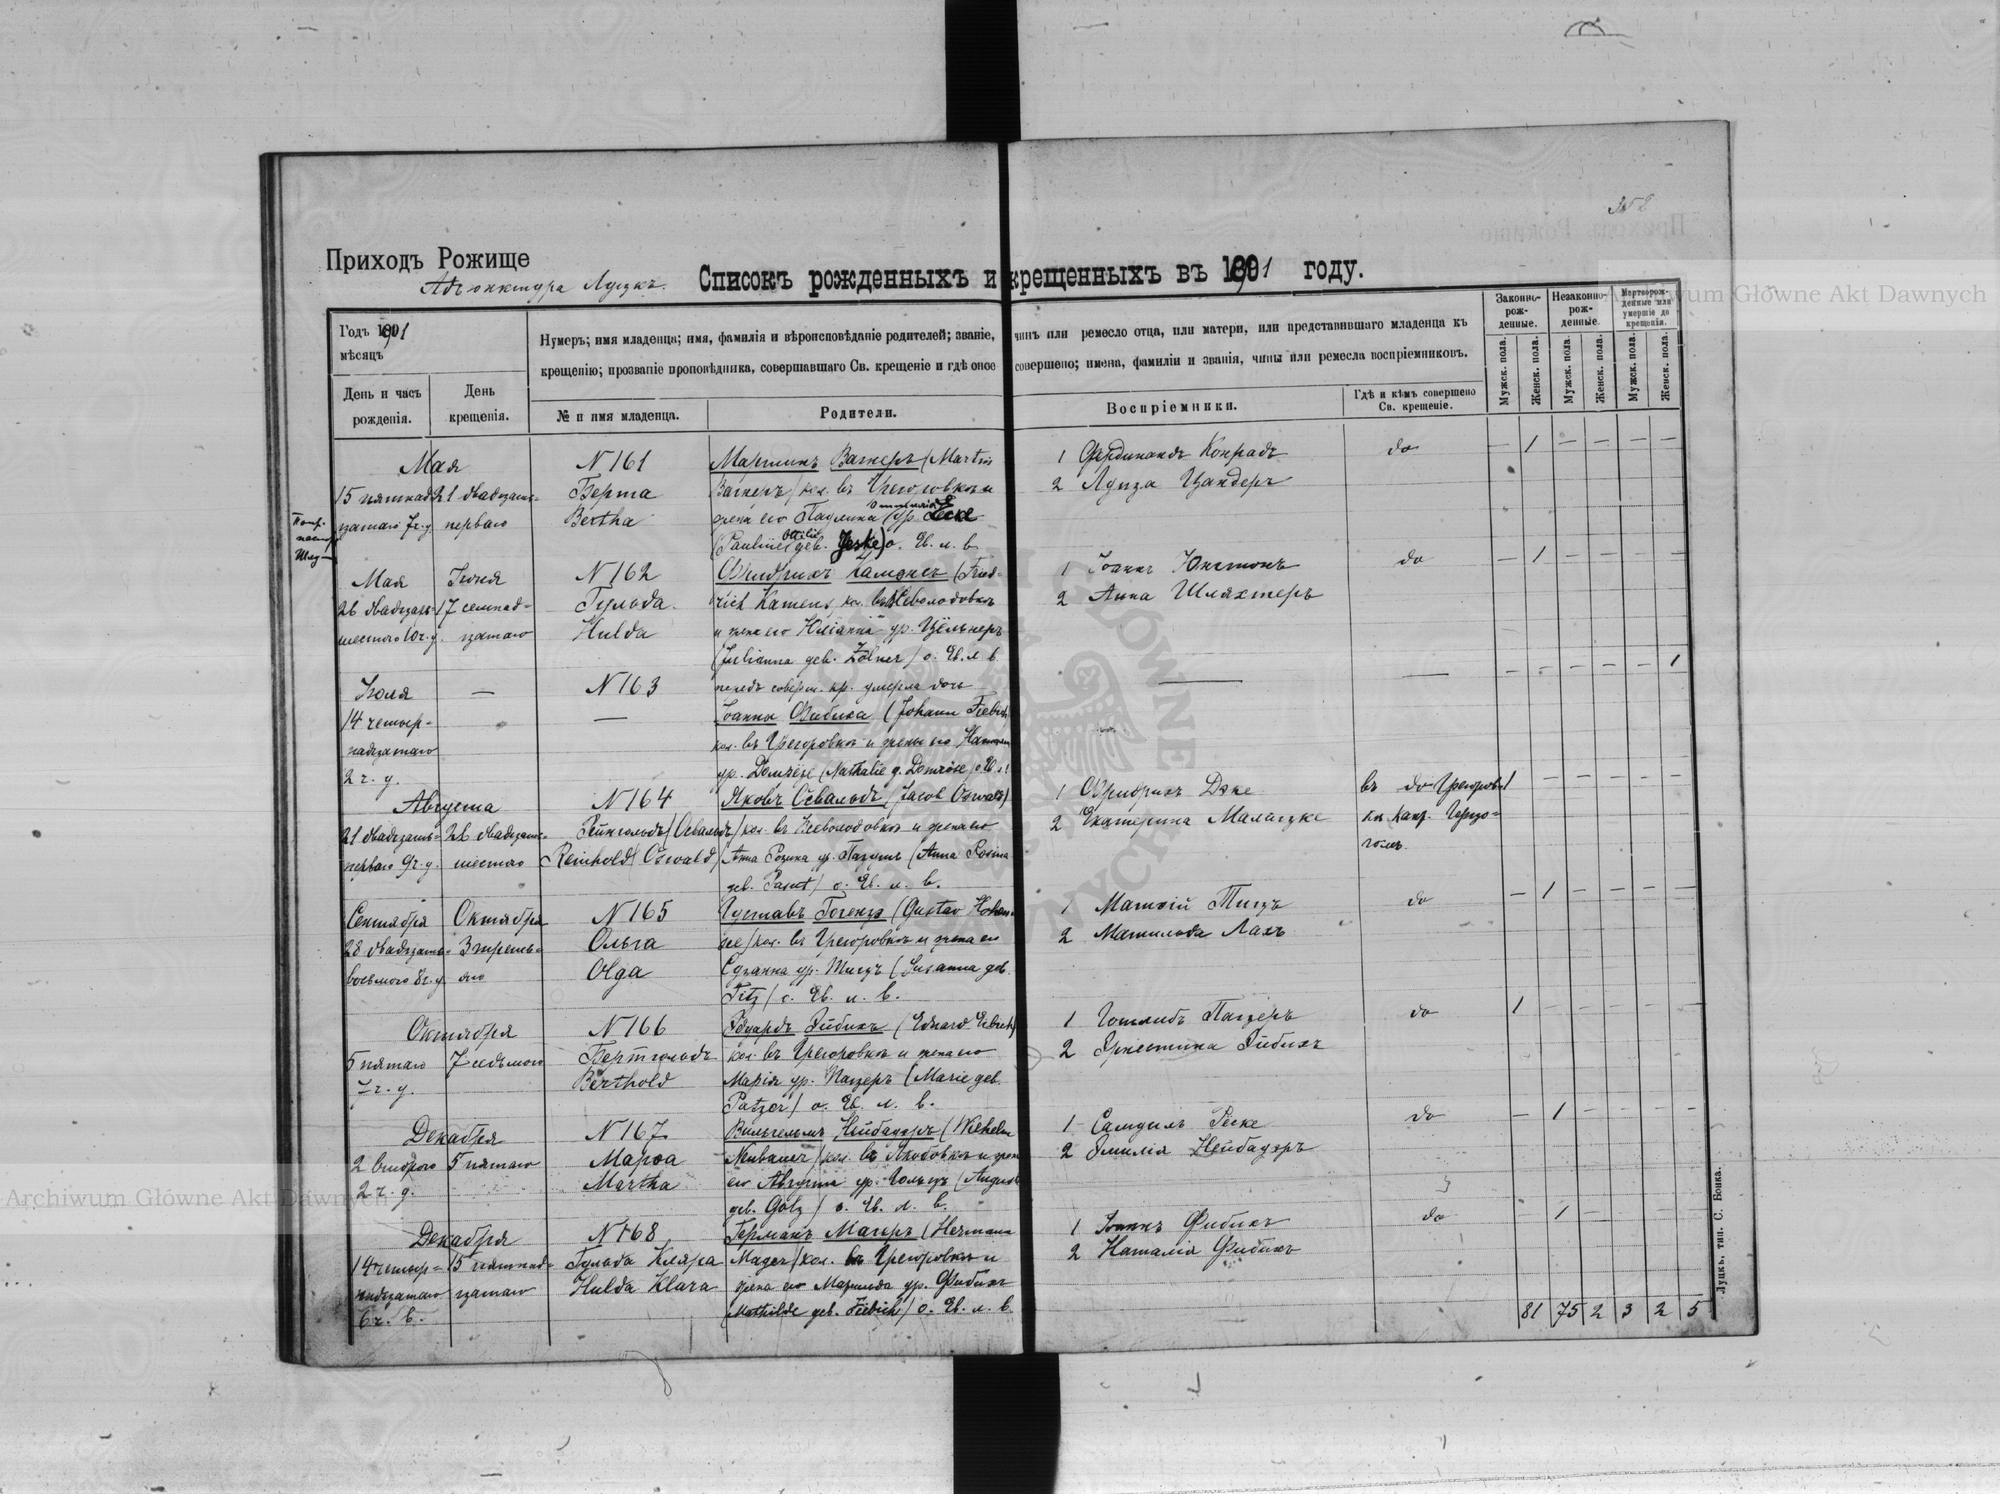 Приходъ Рожище
Адъюнктура Луцкъ.
Списокъ рожденныхъ и крещенныхъ въ 1891 году.
Годъ 1891
мѣсяцъ
День и часъ
рожденія.
День
крещенія.
Нумеръ; имя младенца; имя, фамилія и вѣроисповѣданіе родителей; званіе, чинъ или ремесло отца, или матери, или представившаго младенца къ
крещенію; прозваніе проповѣдника, совершавшаго Св. крещеніе и гдѣ оное совершено; имена, фамиліи и званія, чины или ремесла воспріемниковъ.
№ и имя младенца.
Родители.
Воспріемники.
Гдѣ и кѣмъ совершено
Св. крещеніе.
Законно-
рож-
денные.
Незаконно-
рож-
денные.
Мертворож-
денные или
умершіе до
крещенія.
Мужск. пола.
Женск. пола.
Мужск. пола.
Женск. пола.
Мужск. пола.
Женск. пола.
Мая
15 пятнад-
цатаго 7 ч. у.
21 двадцать-
перваго
N 161
Берта
Bertha
Мартинъ Вагнеръ (Martin
Вагнеръ) кол. въ Грегоровкѣ и
жена его Паулина ур.
(Pauline Ottilie geb. Jeske) о. Ев. л. в.
1 Фердинандъ Конрадъ
2 Луиза Цандеръ
do
— 1 — — — —
Мая
26 двадцать-
шестого 10 ч. у.
Іюня
17 семнад-
цатаго
N 162
Гульда
Hulda
Фридрихъ Камэнсъ (Fried-
rich Kamens кол. въ Всеволодовкѣ
и жена его Юліанна ур. Цёльнеръ
(Julianna geb. Zölner) о. Ев. л. в.
1 Іоаннъ Юнстонъ
2 Анна Шляхтеръ
do
— 1 — — — —
Іюля
14 четыр-
надцатаго
2 ч. у.
—
N 163
—
передъ соверш. кр. умерла дочь
Іоанна Фибиха (Johann Fiebich)
кол. въ Грегоровкѣ и жены его
ур. Домрёзе (Nathalie g. Domröse)
— — — — — 1
Августа
21 двадцать-
перваго 9 ч. у.
26 двадцать-
шестаго
N 164
Рейнгольдъ (Освальдъ)
Reinhold (Oswald)
Яковъ Освальдъ (Jacob Oswald)
кол. въ Всеволодовкѣ и жена его
Анна Розина ур. (Anna Rosina
geb. ) о. Ев. л. в.
1 Фридрихъ Дэке
2 Екатерина
въ do Грегоров-
кѣ Канд.
1 — — — — —
Сентября
28 двадцать-
восьмого 8 ч. у.
Октября
3 третья-
го
N 165
Ольга
Olga
Густавъ Гогензе (Gustav Hohen-
see) кол. въ Грегоровкѣ и жена его
Сузанна ур. Тицъ (Susanna geb.
Titz) о. Ев. л. в.
1 Матвій Тицъ
2 Матильда Лахъ
do
— 1 — — — —
Октября
5 пятаго
7 ч. у.
7 седьмого
N 166
Бертгольдъ
Berthold
Эдуардъ Эйбихъ (Eduard Eibich)
кол. въ Грегоровкѣ и жена его
Марія ур. Пацеръ (Marie geb.
Patzer) о. Ев. л. в.
1 Готлибъ Пацеръ
2 Эрнестина Эйбихъ
do
1 — — — — —
Декабря
2 второго
2 ч. д.
5 пятаго
N 167
Марѳа
Martha
Вильгельмъ Нейбауэръ (Wilhelm
Neubauer) кол. въ Якобовкѣ и жена
его Августа ур. Гольцъ (August
geb. Golz) о. Ев. л. в.
1 Самуилъ Геске
2 Эмилія Нейбауэръ
do
— 1 — — — —
Декабря
14 четыр-
надцатаго
6 ч. в.
15 пятнад-
цатаго
N 168
Гульда Клара
Hulda Klara
Германъ Магеръ (Hermann
Mager) кол. въ Грегоровкѣ и
жена его ур. Фибихъ
(Mathilde geb. Fiebich) о. Ев. л. в.
1 Іоаннъ Фибихъ
2 Наталія Фибихъ
do
— 1 —
81 75 2 3 2 5
Луцкъ, тип. С. Бонка.
Archiwum Główne Akt Dawnych
Archiwum Główne Akt Dawnych